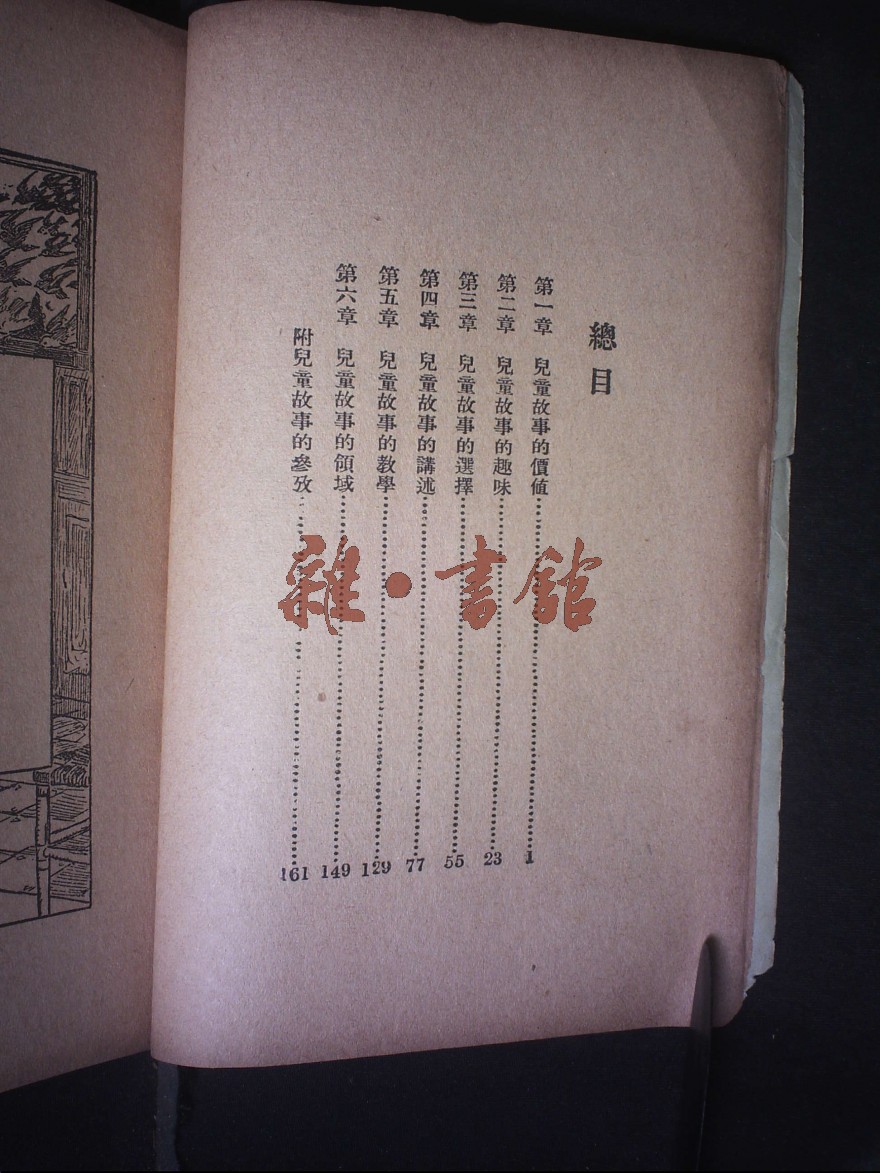 總目
第一章 兒童故事的價値 1
第二章 兒童故事的趣味 23
第三章 兒童故事的選擇 55
第四章 兒童故事的講述 77
第五章 兒童故事的教學 129
第六章 兒童故事的領域 149
附兒童故事的參攷 161
雜·書館